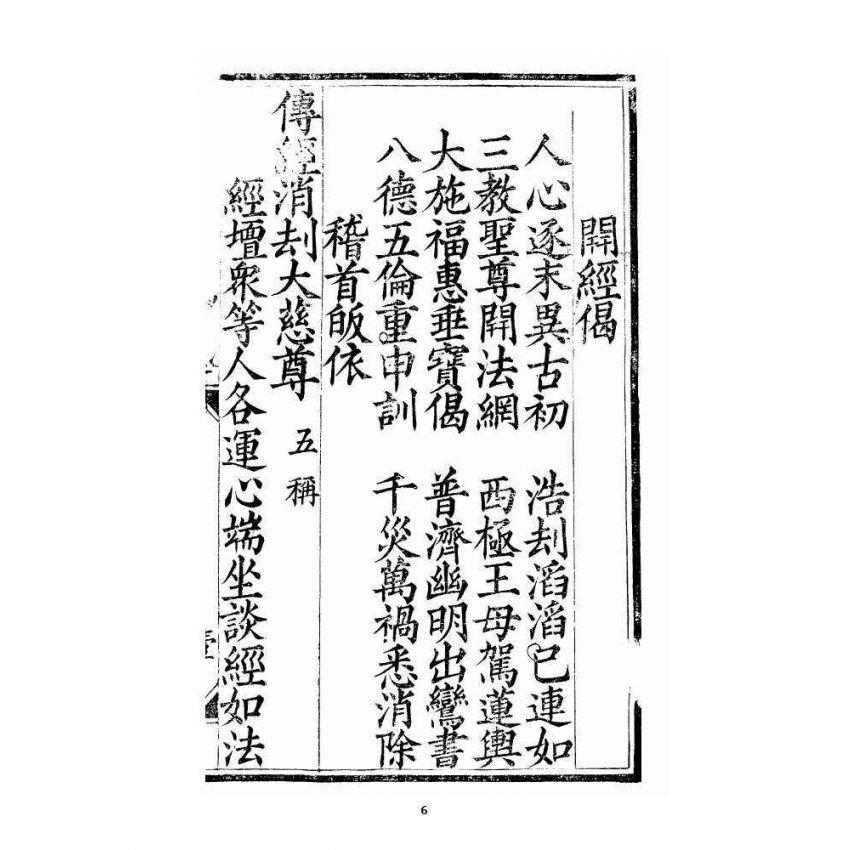 開經偈
人心逐末異古初　浩刦滔滔已連如
三教聖尊開法網　西極王母駕蓮輿
大施福惠垂寶偈　普濟幽明出鸞書
八德五倫重申訓　千災萬禍悉消除
稽首皈依
傳經消刦大慈尊　五稱
經壇衆等人各運心端坐談經如法
6